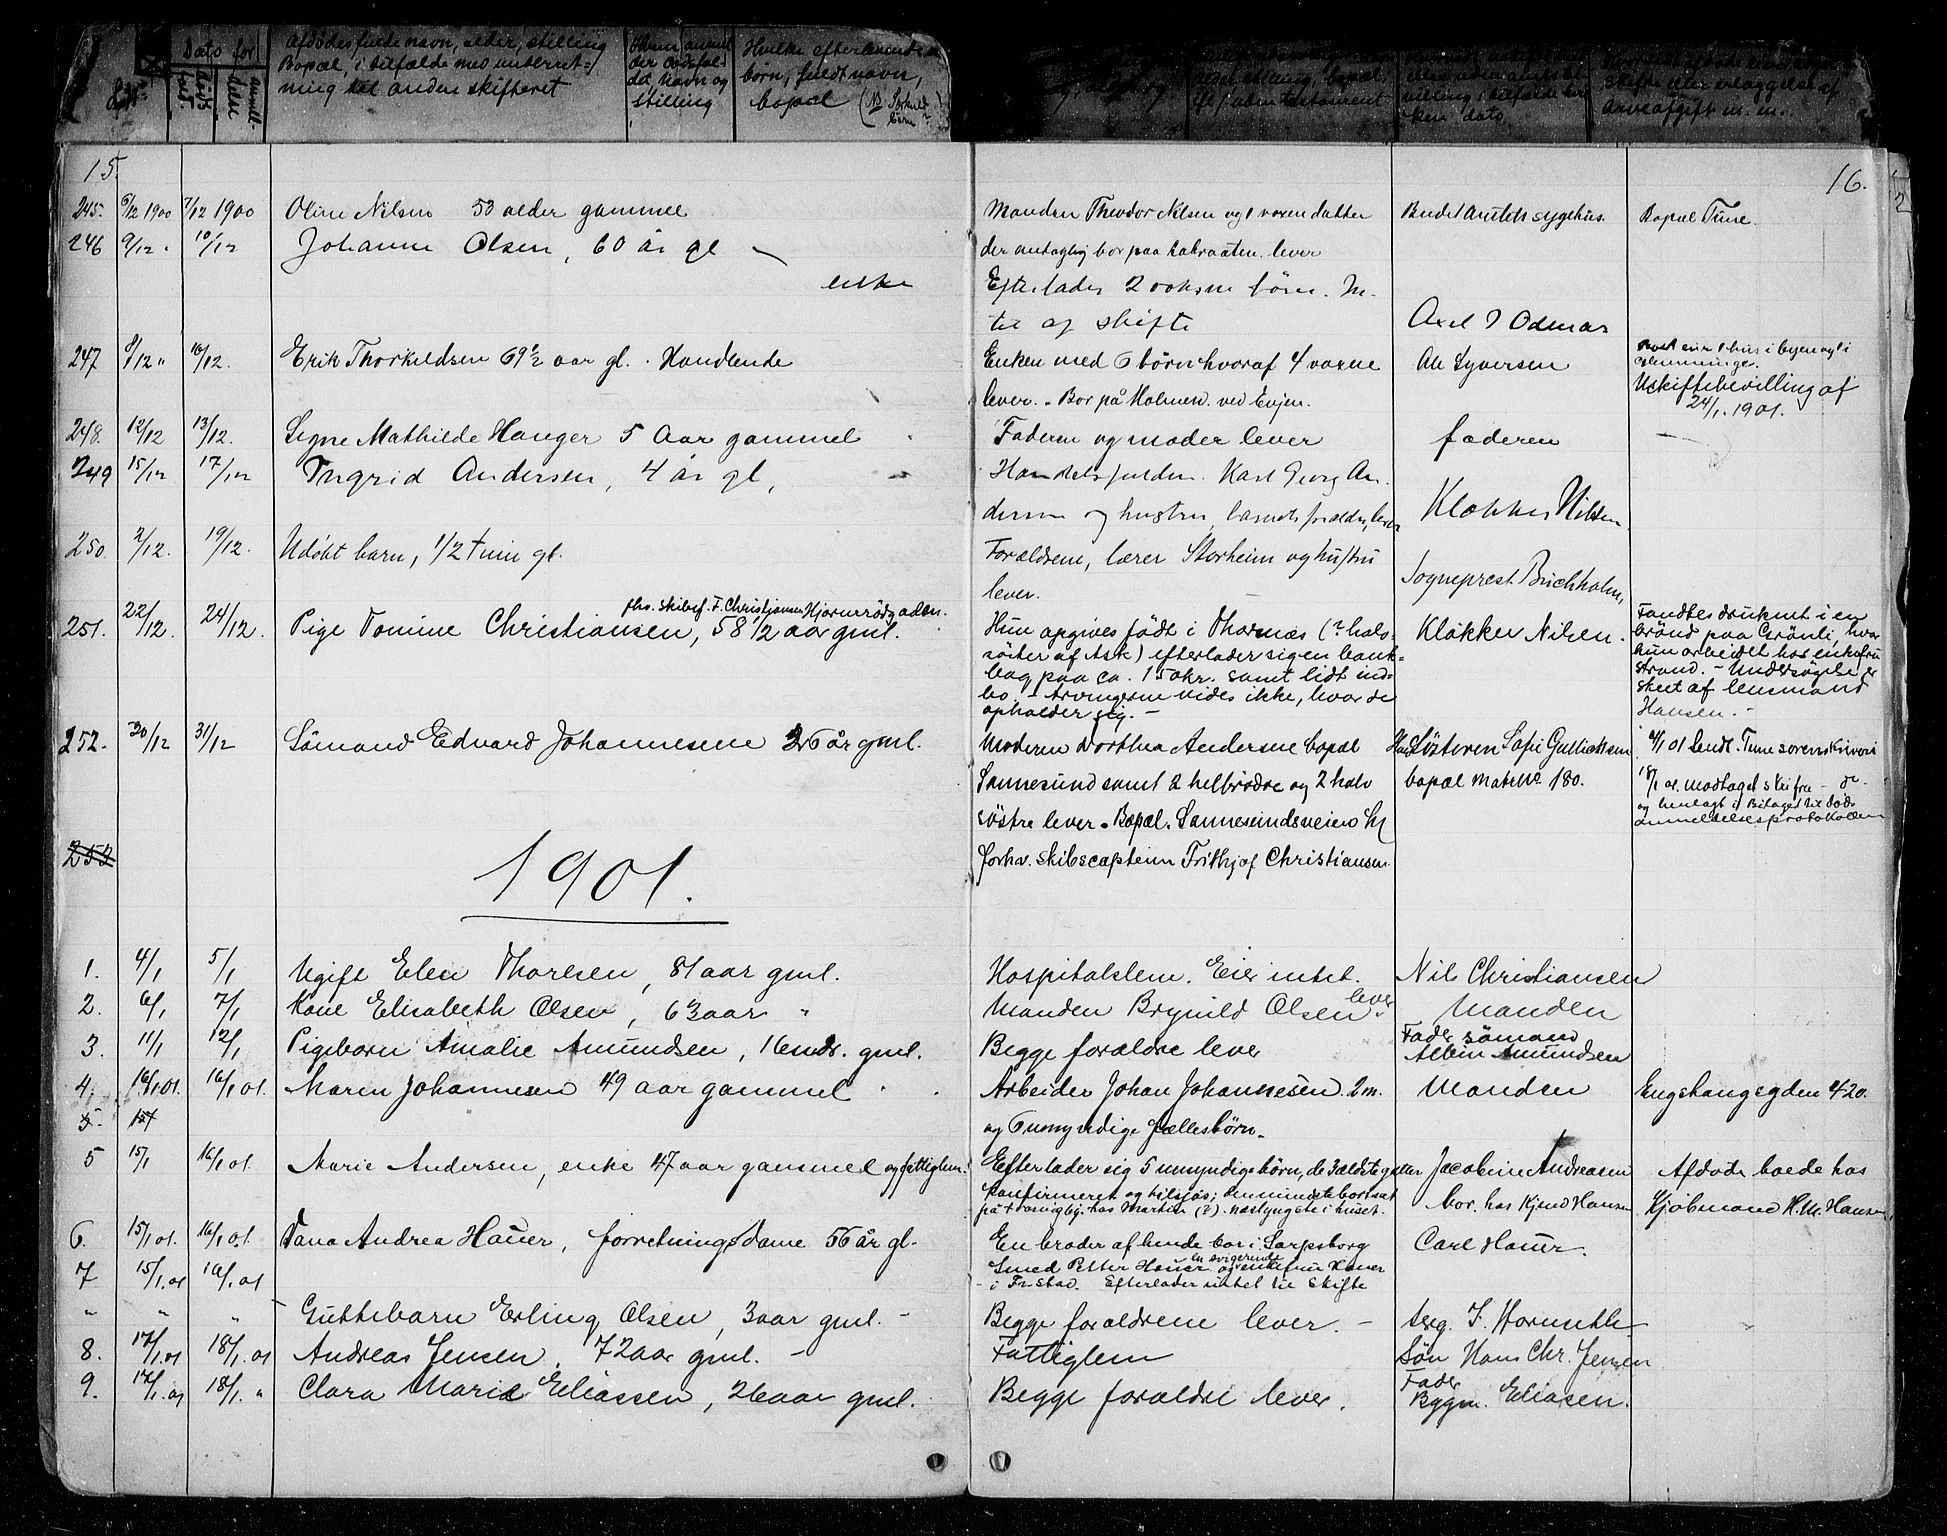 Dato for
Afdödes fulde navn, alder, stilling
Bopæl, i tilfælde med underret-
ning til anden skifteret
Hvem anmel
der dødsfal-
det, Navn og
stilling
Hvilke efterlevende
börn, fuldt navn,
bopæl
15.
16.
245. 6/12 1900 7/12 1900 Oline Nilsen 53 alder gammel Manden Theodor Nilsen og 1 voxen datter Budet Amtets sygehus. Bopæl Tune.
246 9/12 " 10/12 Johanne Olsen, 60 år gl der antaglig bor paa lever
enke Efterlader 2 voksne börn. In-
tet af skifte Axel Odmar
247 8/12 " 10/12. Erik Thorkildsen 69 1/2 aar gl. Handlende Enken med 6 börn hvoraf 4 voxne Ole Syversen hus i byen og i
Glemminge.
lever. Bor på Holmen ved Evjen. Uskiftebevilling af
24/1. 1901.
248. 12/12 13/12. Signe Mathilde Hanger 5 Aar gammel Faderen og moder lever faderen
249 15/12 17/12 Ingrid Andersen, 4 år gl, Handelsfuldm. Karl Georg An-
dersen og hustru, barnets forældre, lever Klokker Nilsen
250. 2/12. 19/12. Udöbt barn, 1/2 time gl. Forældrene, lærer Storheim og hustru
lever. Sogneprest Buchholm,
fhv. skibsf. F. Christiansen
251. 22/12. 24/12. Pige Tomine Christiansen, 58 1/2 aar gml. Hun opgives födt i Tharnæs (? halv- Klokker Nilsen. Fandtes druknet i en
söster af Ask) efterlader sig en bank- brönd paa Grönli, hvor
bog paa ca. 150 kr. samt lidt ind- hun arbeidet hos enkefru
bo. - Arvingerne vides ikke, hvor de Strand. - Undersögelse er
opholder sig. - skeet af lensmand
Hansen. -
252. 30/12 31/12 Sömand Edvard Johannesene 26 år gml. Moderen Dorthea Andersene bopæl Söstren Sofie Gullichsen 4/1 01 Sendt Tune sorenskriveri
Sannesund samt 2 helbrödre og 2 halv bopæl Matr No. 180. 18/1 01. modtaget skifra - do -
söstre lever. Bopæl. Sannesundsveien hl og henlagt i Bilaget til Döds
anmeldelsesprotokollen
253 forhv. Skibscaptein Frithjof Christiansen.
1901.
1. 4/1 5/1 Ugift Elen Thoresen, 81 aar gml. Hospitalslem. Eier intet. Nils Christiansen
2. 6/1 7/1 Kone Elisabeth Olsen, 63 aar " Manden Brynild Olsen lever Manden
3. 11/1 12/1 Pigebarn Amalie Amundsen, 16 mdr. gml. Begge forældre lever Fader sömand
Albin Amundsen
4. 16/1 01. 16/1 01. Maren Johannesen 49 aar gammel Arbeider Johan Johannesen. 2 m. Manden Enghaugsgden 420.
5. 15/1 og 6 umyndige fællesbörn.
5 15/1 16/1 01. Marie Andersen, enke 47 aar gammel og fattiglem. Efterlader sig 5 umyndige börn, de 3 ældste gaar Jacobine Andreasen Afdöde boede hos
konfirmeret og tilsjös; den mindste bortsat bor. hos Kjmd Hansen Kjöbmand H. M. Hansen,
på hos Martin (?). næstyngste i huset.
6. 15/1 01. 16/1 01. Dana Andrea Hauer, forretningsdame 56 år gl. En broder af hende bor i Sarpsborg Carl Hauer.
en svigerinde
7 15/1. 01 16/1. 01 Smed Petter Hauer og enkefru Hauer
i Fr.stad. Efterlader intet til Skifte
" " " Guttebarn Erling Olsen, 3 aar gml. - Begge forældrene lever. -
8. 17/1. 01 18/1. 01 Andreas Jensen, 72 aar gml. - Fattiglem Sön Hans Chr. Jensen
9. 17/1. 01 18/1. " Clara Marie Eliassen, 26 aar gml. Begge forældre lever. Fader
Bygm. Eliasen.